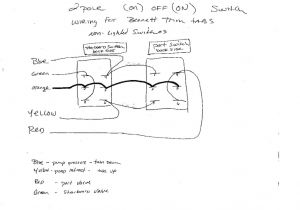 2 pole (on) OFF (ON) Switch
wiring for Bennett Trim TABS
non-Lighted Switches
Starboard Switch
back side
Port Switch
back side
Blue
Green
orange
YELLOW
RED
Blue - pump pressure -
Yellow - pump
Red - port valve
Green - Starboard valve